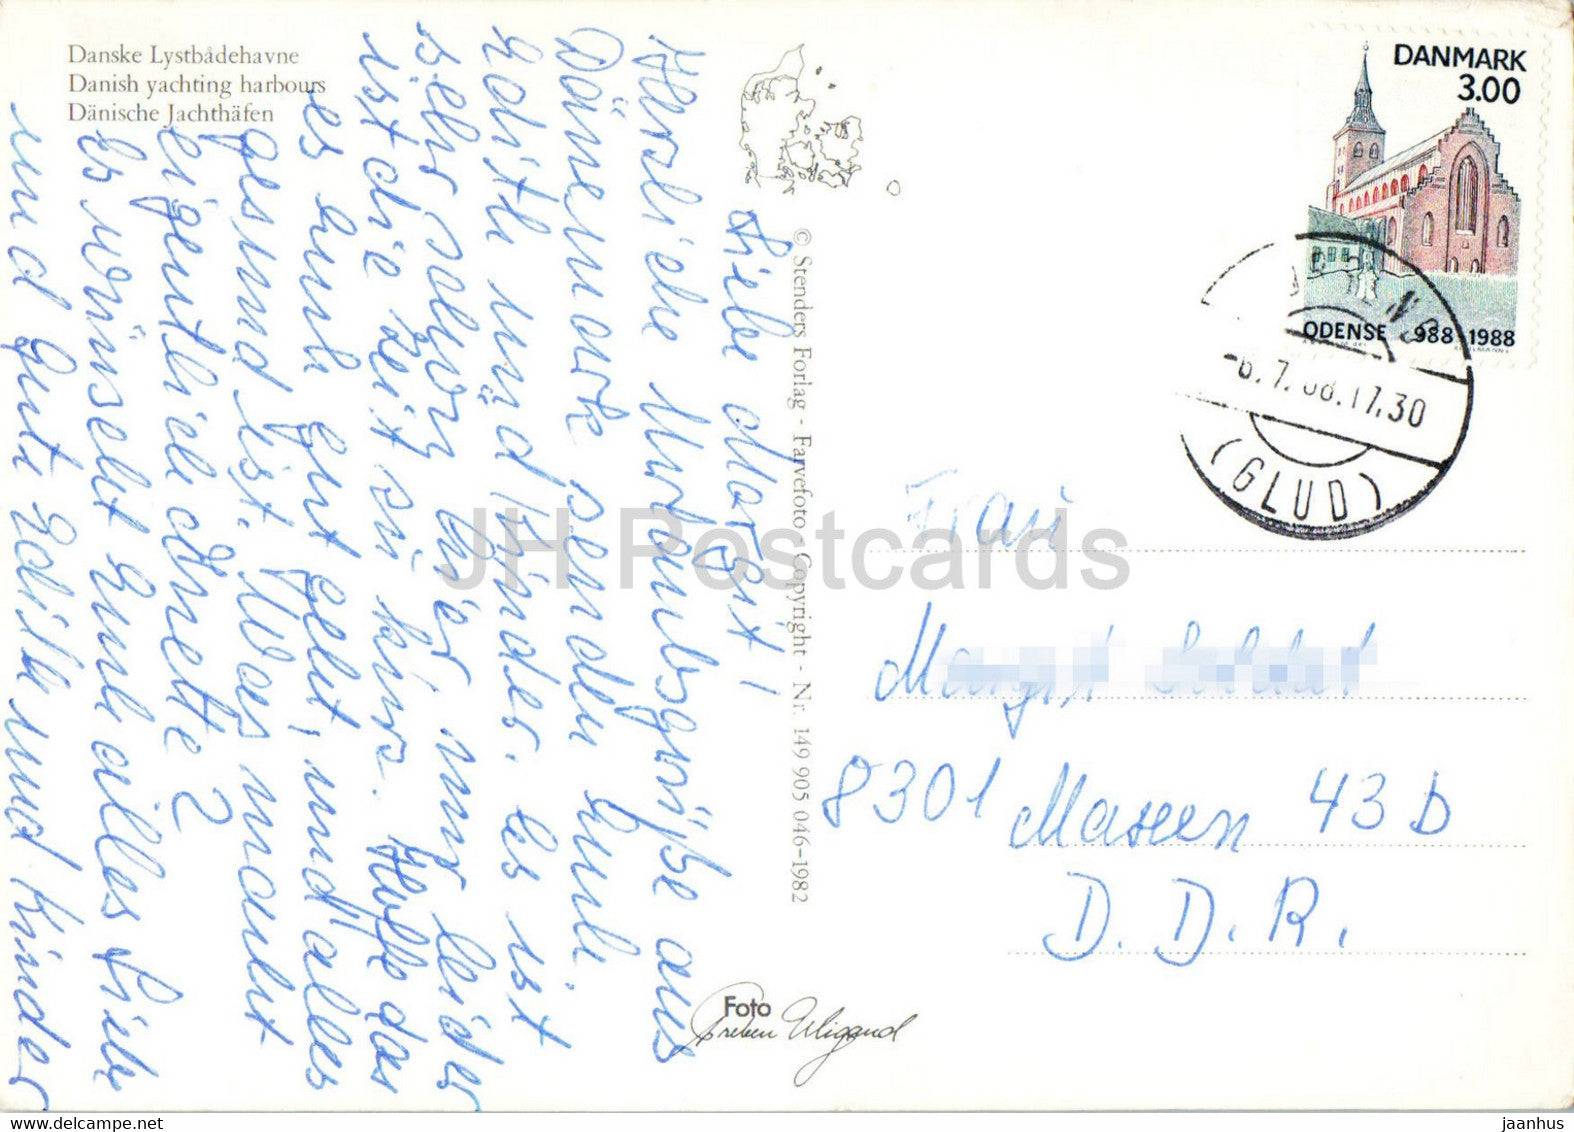 Danske Lystbådehavne
Danish yachting harbours
Dänische Jachthäfen
Liebe Margit!
Herzliche Urlaubsgrüße aus
Dänemark senden Euch
Edith und Kinder. Es ist
sehr schön hier nur leider
ist die Zeit zu kurz. Hoffe das
es Euch gut geht, und alles
gesund ist. Was macht
eigentlich Annette?
Es wünscht Euch alles Liebe
und Gute Edith und Kinder
© Stenders Forlag - Farvefoto - Copyright - Nr. 149 905 046-1982
Foto
Preben Wigand
DANMARK
3.00
ODENSE 988-1988
-6.7.88.17.30
(GLUD)
Frau
8301 Maxen 43 D
D. D. R.
JH Postcards
jaanhus